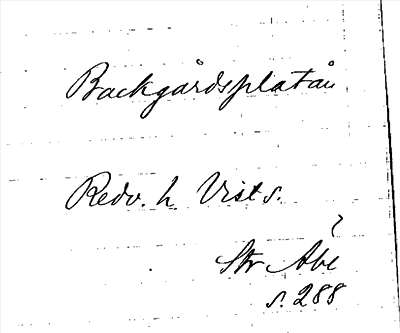 Backgårdsplatån
Redv. h. Vists.
?
Str Abe
s. 288